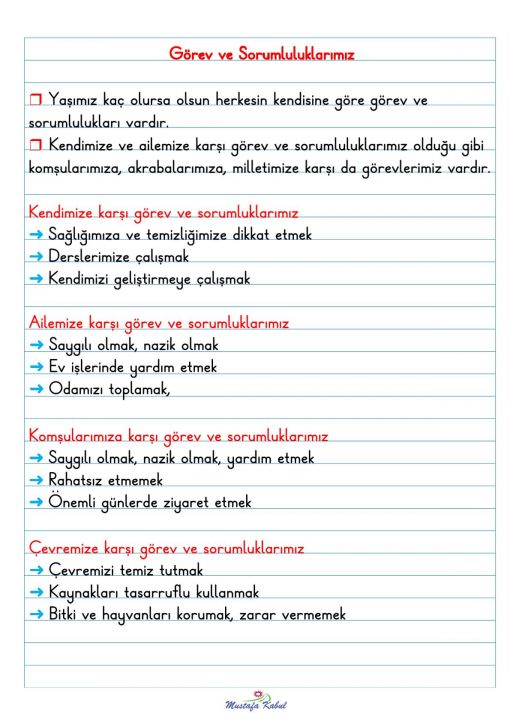 Görev ve Sorumluluklarımız
❒ Yaşımız kaç olursa olsun herkesin kendisine göre görev ve
sorumlulukları vardır.
❒ Kendimize ve ailemize karşı görev ve sorumluluklarımız olduğu gibi
komşularımıza, akrabalarımıza, milletimize karşı da görevlerimiz vardır.
Kendimize karşı görev ve sorumluklarımız
➔ Sağlığımıza ve temizliğimize dikkat etmek
➔ Derslerimize çalışmak
➔ Kendimizi geliştirmeye çalışmak
Ailemize karşı görev ve sorumluklarımız
➔ Saygılı olmak, nazik olmak
➔ Ev işlerinde yardım etmek
➔ Odamızı toplamak,
Komşularımıza karşı görev ve sorumluklarımız
➔ Saygılı olmak, nazik olmak, yardım etmek
➔ Rahatsız etmemek
➔ Önemli günlerde ziyaret etmek
Çevremize karşı görev ve sorumluklarımız
➔ Çevremizi temiz tutmak
➔ Kaynakları tasarruflu kullanmak
➔ Bitki ve hayvanları korumak, zarar vermemek
Mustafa Kabul